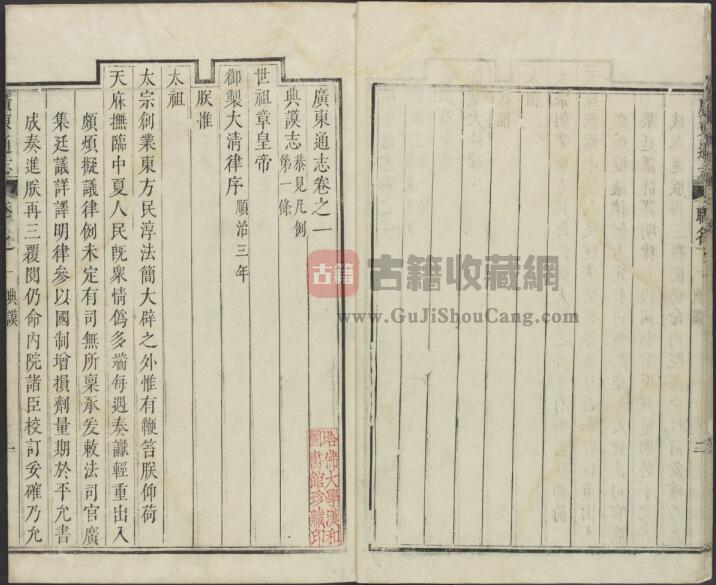 廣東通志卷之一
典謨志 恭見凡例第一條
世祖章皇帝
御製大清律序 順治三年
朕惟
太祖
太宗創業東方民淳法簡大辟之外惟有鞭笞朕仰荷
天庥撫臨中夏人民旣衆情僞多端每遇奏讞輕重出入
頗煩擬議律例未定有司無所稟承爰敕法司官廣
集廷議詳譯明律參以國制增損劑量期於平允書
成奏進朕再三覆閱仍命內院諸臣校訂妥確乃允
廣東通志
典謨
一
哈佛大學漢和圖書館珍藏印
古籍
古籍收藏網
www.GuJiShouCang.com
職名
二